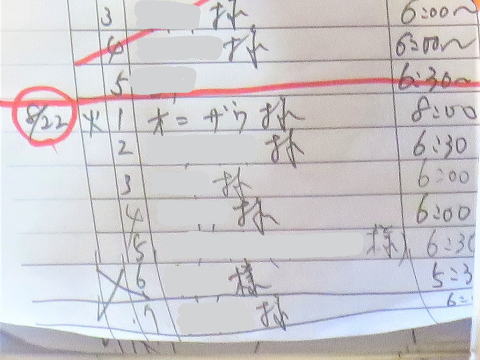 3 様 6:00~
4 様 6:00~
5 6:30~
8/22 火 1 オニザワ 様 8:00
2 様 6:30
3 様 6:00
4 様 6:00
5 様) 6:30
6 様 5:3
7 様 6: